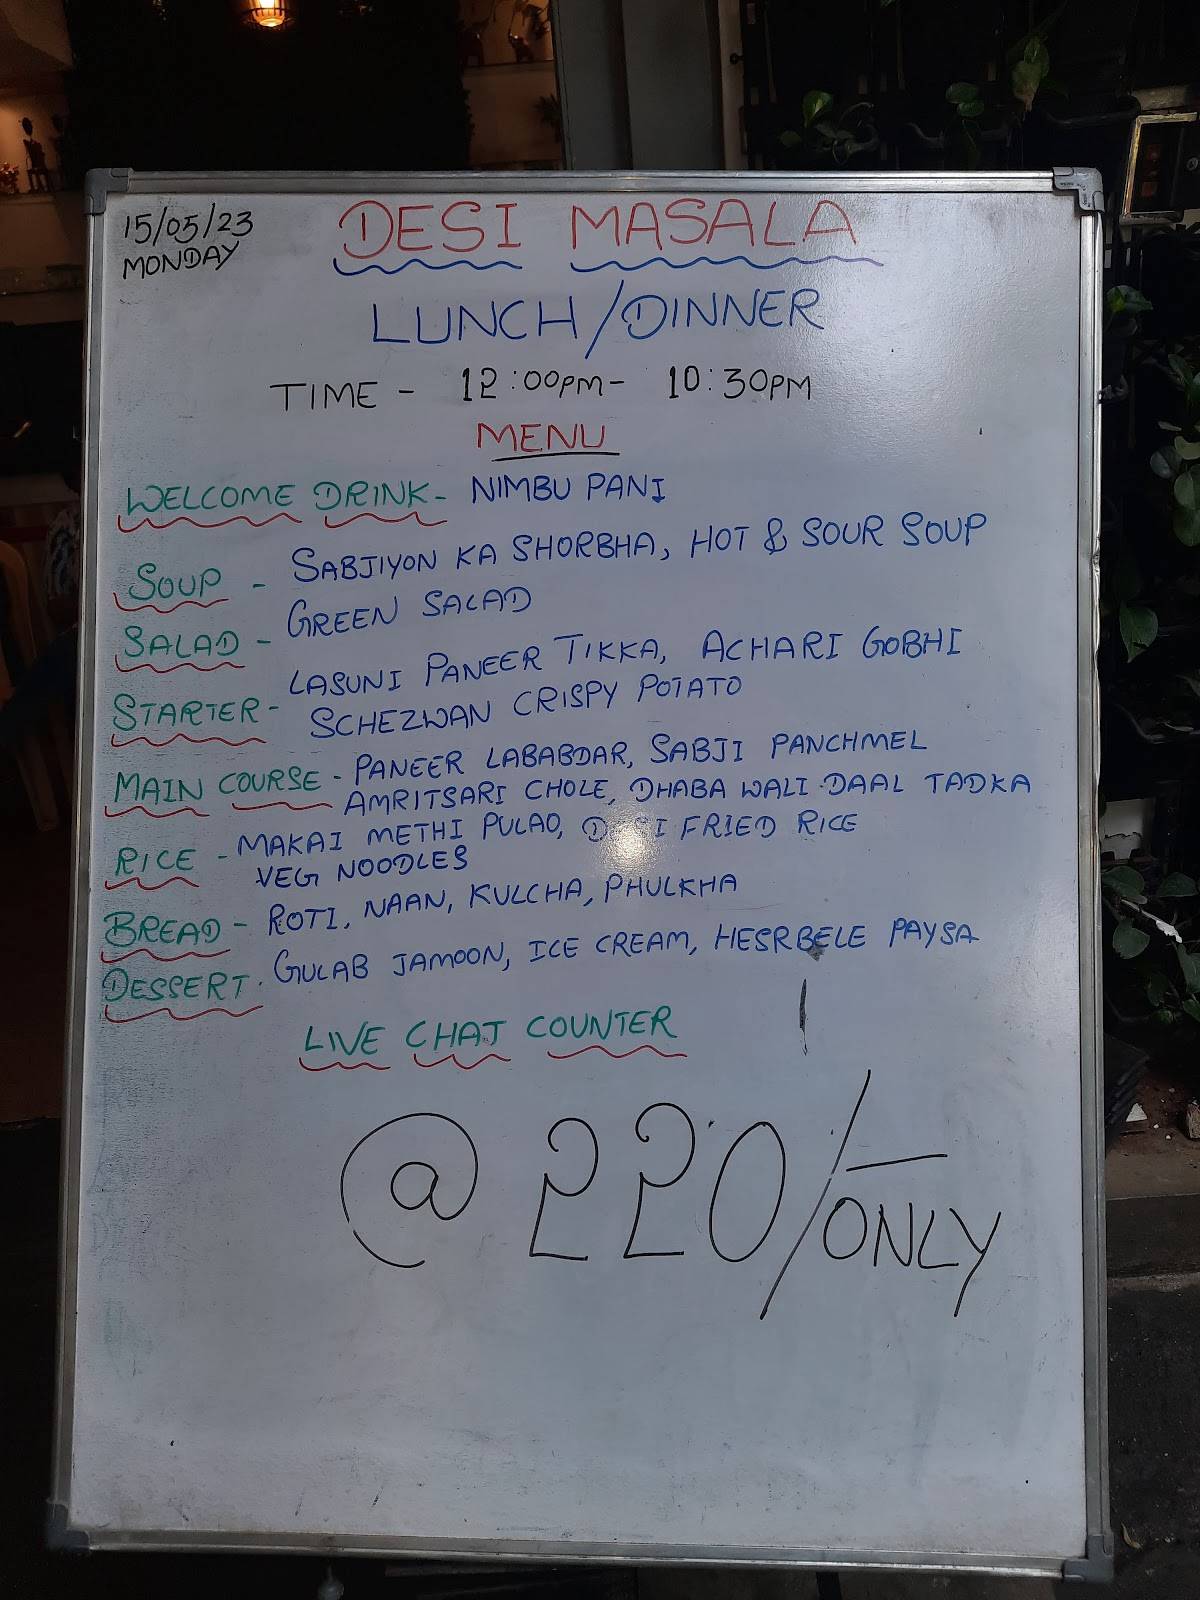 15/05/23
MONDAY
DESI MASALA
LUNCH/DINNER
TIME - 12:00PM - 10:30PM
MENU
WELCOME DRINK - NIMBU PANI
SOUP - SABJIYON KA SHORBHA, HOT & SOUR SOUP
SALAD - GREEN SALAD
STARTER - LASUNI PANEER TIKKA, ACHARI GOBHI
SCHEZWAN CRISPY POTATO
MAIN COURSE - PANEER LABABDAR, SABJI PANCHMEL
AMRITSARI CHOLE, DHABA WALI DAAL TADKA
RICE - MAKAI METHI PULAO, FRIED RICE
VEG NOODLES
BREAD - ROTI, NAAN, KULCHA, PHULKHA
DESSERT. GULAB JAMOON, ICE CREAM, HESRBELE PAYSA
LIVE CHAT COUNTER
@ 220/- ONLY